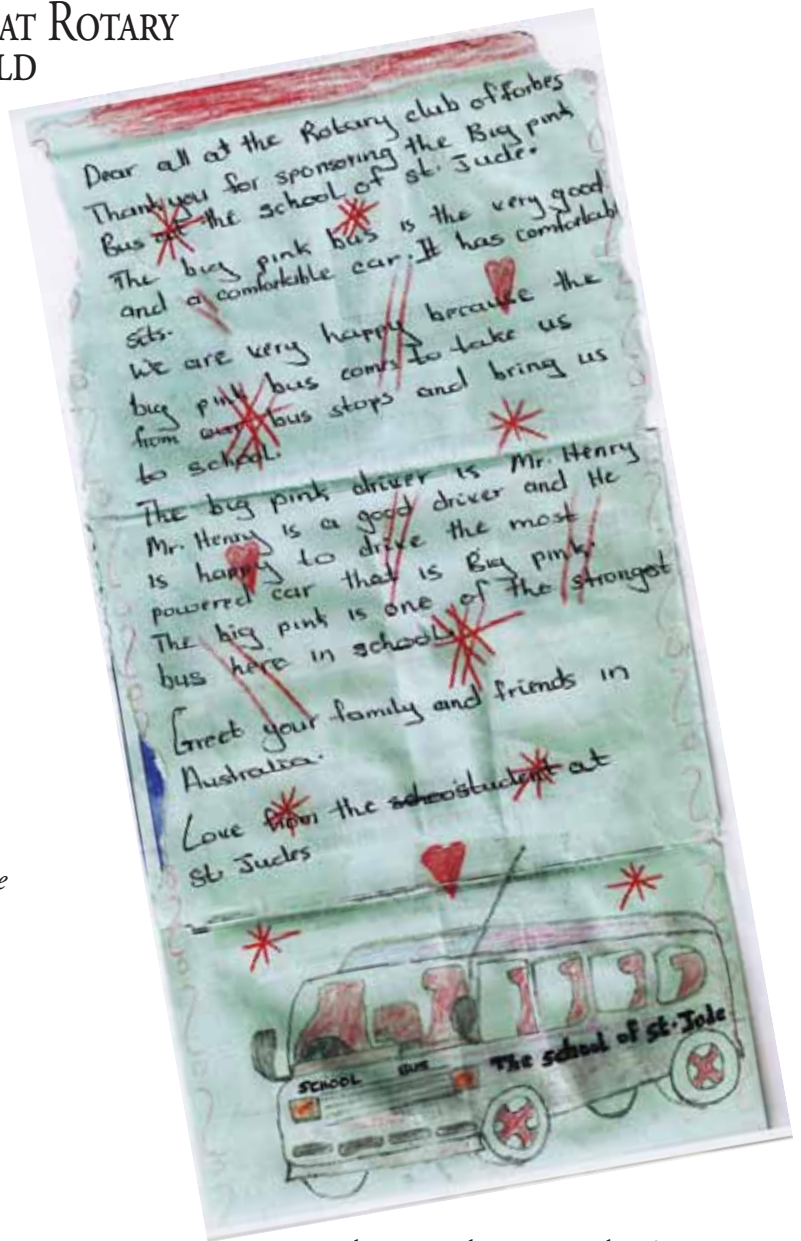 AT ROTARY
LD
Dear all at the Rotary club of Forbes
Thank you for sponsoring the Big pink
Bus at the school of st. Jude.
The big pink bus is the very good
and a comfortable car. It has comfortabl
sits.
We are very happy because the
big pink bus comes to take us
from our bus stops and bring us
to school.
The big pink driver is Mr. Henry
Mr. Henry is a good driver and He
is happy to drive the most
powered car that is Big pink.
The big pink is one of the strongest
bus here in school.
Greet your family and friends in
Australia.
Love from the student at
St Judes
e
SCHOOL BUS
The school of st. Jude